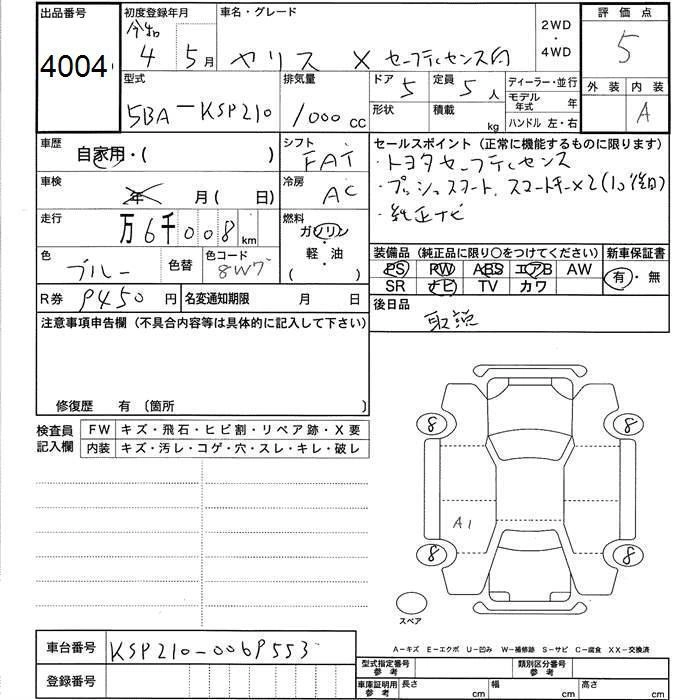 出品番号 初度登録年月 車名・グレード 2WD・4WD 評価点
4004 令和 4 5月 ヤリス X セーフティセンス付 5
型式 排気量 ドア 5 定員 5 人 ディーラー・並行 外装 内装
5BA-KSP210 1000 cc 形状 積載 kg モデル年式 年 A
ハンドル 左・右
車歴 シフト セールスポイント (正常に機能するものに限ります)
自家用・( ) FAT ・トヨタセーフティセンス
車検 冷房 ・プッシュスタート、スマートキー×2
年 月 ( 日) AC ・純正ナビ
走行 燃料
万 6千008 km ガソリン・軽油 ( )
色 色替 色コード 装備品 (純正品に限り○をつけてください) 新車保証書
ブルー 8W7 PS PW ABS エアB AW 有・無
SR ナビ TV カワ
R券 9450 円 名変通知期限 月 日 後日品
注意事項申告欄 (不具合内容等は具体的に記入して下さい) 取説
修復歴 有 〔箇所 〕
検査員記入欄 FW キズ・飛石・ヒビ割・リペア跡・X要
内装 キズ・汚レ・コゲ・穴・スレ・キレ・破レ
8 8
A1
8 8
スペア
車台番号 KSP210-0069553
A-キズ E-エクボ U-凹み W-補修跡 S-サビ C-腐食 XX-交換済
登録番号
型式指定番号 参考 類別区分番号 参考
車庫証明用 参考 長さ cm 幅 cm 高さ cm